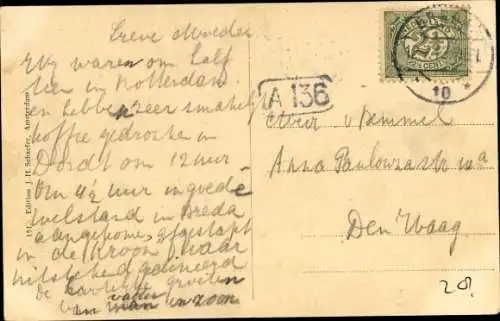 Lieve Moeder
Wij waren om half
tien in Rotterdam
en hebben zeer smakelijk
koffie gedronken in
Dordt om 12 uur
Om 4½ uur in goede
welstand in Breda
aangekomen, afgestapt
in de Kroon waar
uitstekend gedineerd
De hartelijke groeten
van vader en zoon
A 136
Mevr
Anna Paulownastr
Den Haag
2½ CENT
10
20.
1911. Edition J. H. Schaefer, Amsterdam